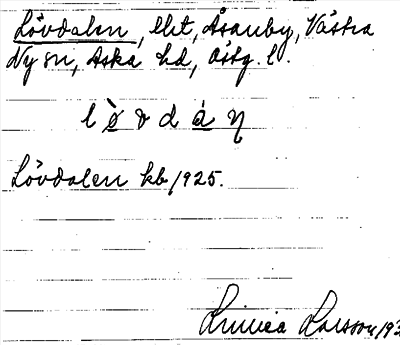 Lövdalen, lht, Åsanby, Västra
Ny sn, Aska hd, Östg. l.
l ö̀ v d á n
Lövdalen kb 1925.
Linnea Larsson, 193